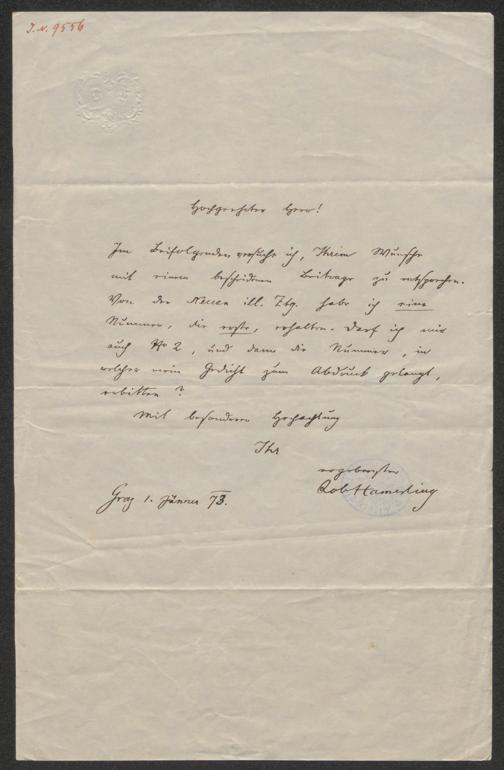 J. N. 9556
Hochgeehrter Herr!
Im Beifolgenden versuche ich, Ihrem Wunsche
mit einem bescheidenen Beitrage zu entsprechen.
Von der Neuen ill. Ztg. habe ich eine
Nummer, die erste, erhalten. Darf ich mir
auch No 2, und dann die Nummer, in
welcher mein Gedicht zum Abdruck gelangt,
erbitten?
Mit besonderer Hochachtung
Ihr
ergebenster
Rob Hamerling
Graz 1. Jänner 73.